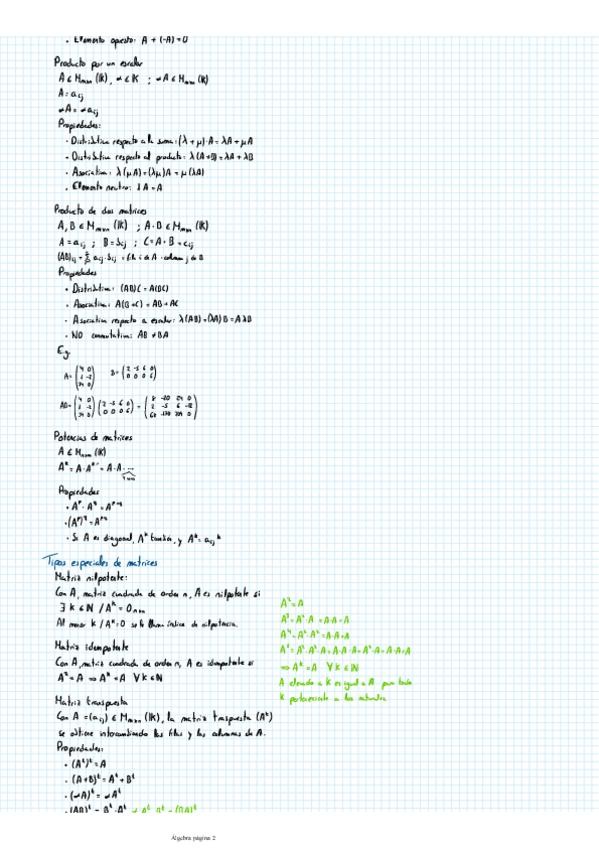 • Elemento opuesto: A + (-A) = 0
Producto por un escalar
A ∈ Mmxn (K), α ∈ K ; αA ∈ Mmxn (K)
A = aij
αA = αaij
Propiedades:
• Distributiva respecto a la suma: (λ + μ)·A = λA + μA
• Distributiva respecto al producto: λ(A+B) = λA + λB
• Asociativa: λ(μA) = (λμ)A = μ(λA)
• Elemento neutro: 1A = A
Producto de dos matrices
A, B ∈ Mmxn (K) ; A·B ∈ Mmxn (K)
A = aij ; B = bij ; C = A·B = cij
(AB)ij = aij·bij = fila i de A · column j de B
Propiedades
• Distributiva: (AB)C = A(BC)
• Asociativa: A(B+C) = AB + AC
• Asociativa respecto a escalar: λ(AB) = (λA)B = AλB
• NO conmutativa: AB ≠ BA
E.g
Potencias de matrices
A ∈ Mmxn (K)
Propiedades
• A^p · A^q = A^p+q
• (A^p)^q = A^p·q
• Si A es diagonal, A^k también, y A^k = aij^k
Tipos especiales de matrices
Matriz nilpotente:
Con A, matriz cuadrada de orden n, A es nilpotente si
∃ k ∈ N / A^k = 0nxn
Al menor k / A^k = 0 se le llama índice de nilpotencia.
Matriz idempotente
Con A, matriz cuadrada de orden n, A es idempotente si
A² = A ⇒ A^k = A ∀ k ∈ N
A² = A
A³ = A²·A = A·A = A
A⁴ = A²·A² = A·A = A
⇒ A^k = A ∀ k ∈ N
A elevado a k es igual a A para todo
k perteneciente a los naturales
Matriz traspuesta
Con A = (aij) ∈ Mmxn (K), la matriz traspuesta (A^t)
se obtiene intercambiando las filas y las columnas de A.
Propiedades:
• (A^t)^t = A
• (A+B)^t = A^t + B^t
• (αA)^t = αA^t
• (AB)^t = B^t·A^t ≠ A^t·B^t = (BA)^t
Álgebra página 2